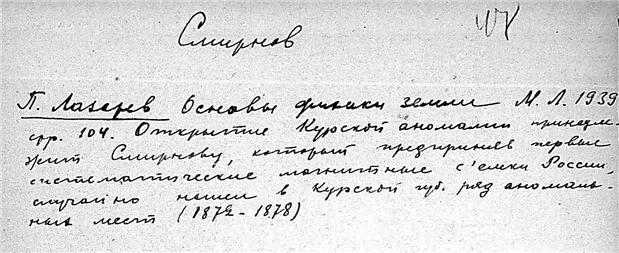 Смирнов
П. Лазарев Основы физики земли М.Л. 1939
стр. 104. Открытие Курской аномалии принадле-
жит Смирнову, который предпринял первые
систематические магнитные с'емки России,
случайно нашел в Курской губ. ряд аномаль-
ных мест (1872-1878)